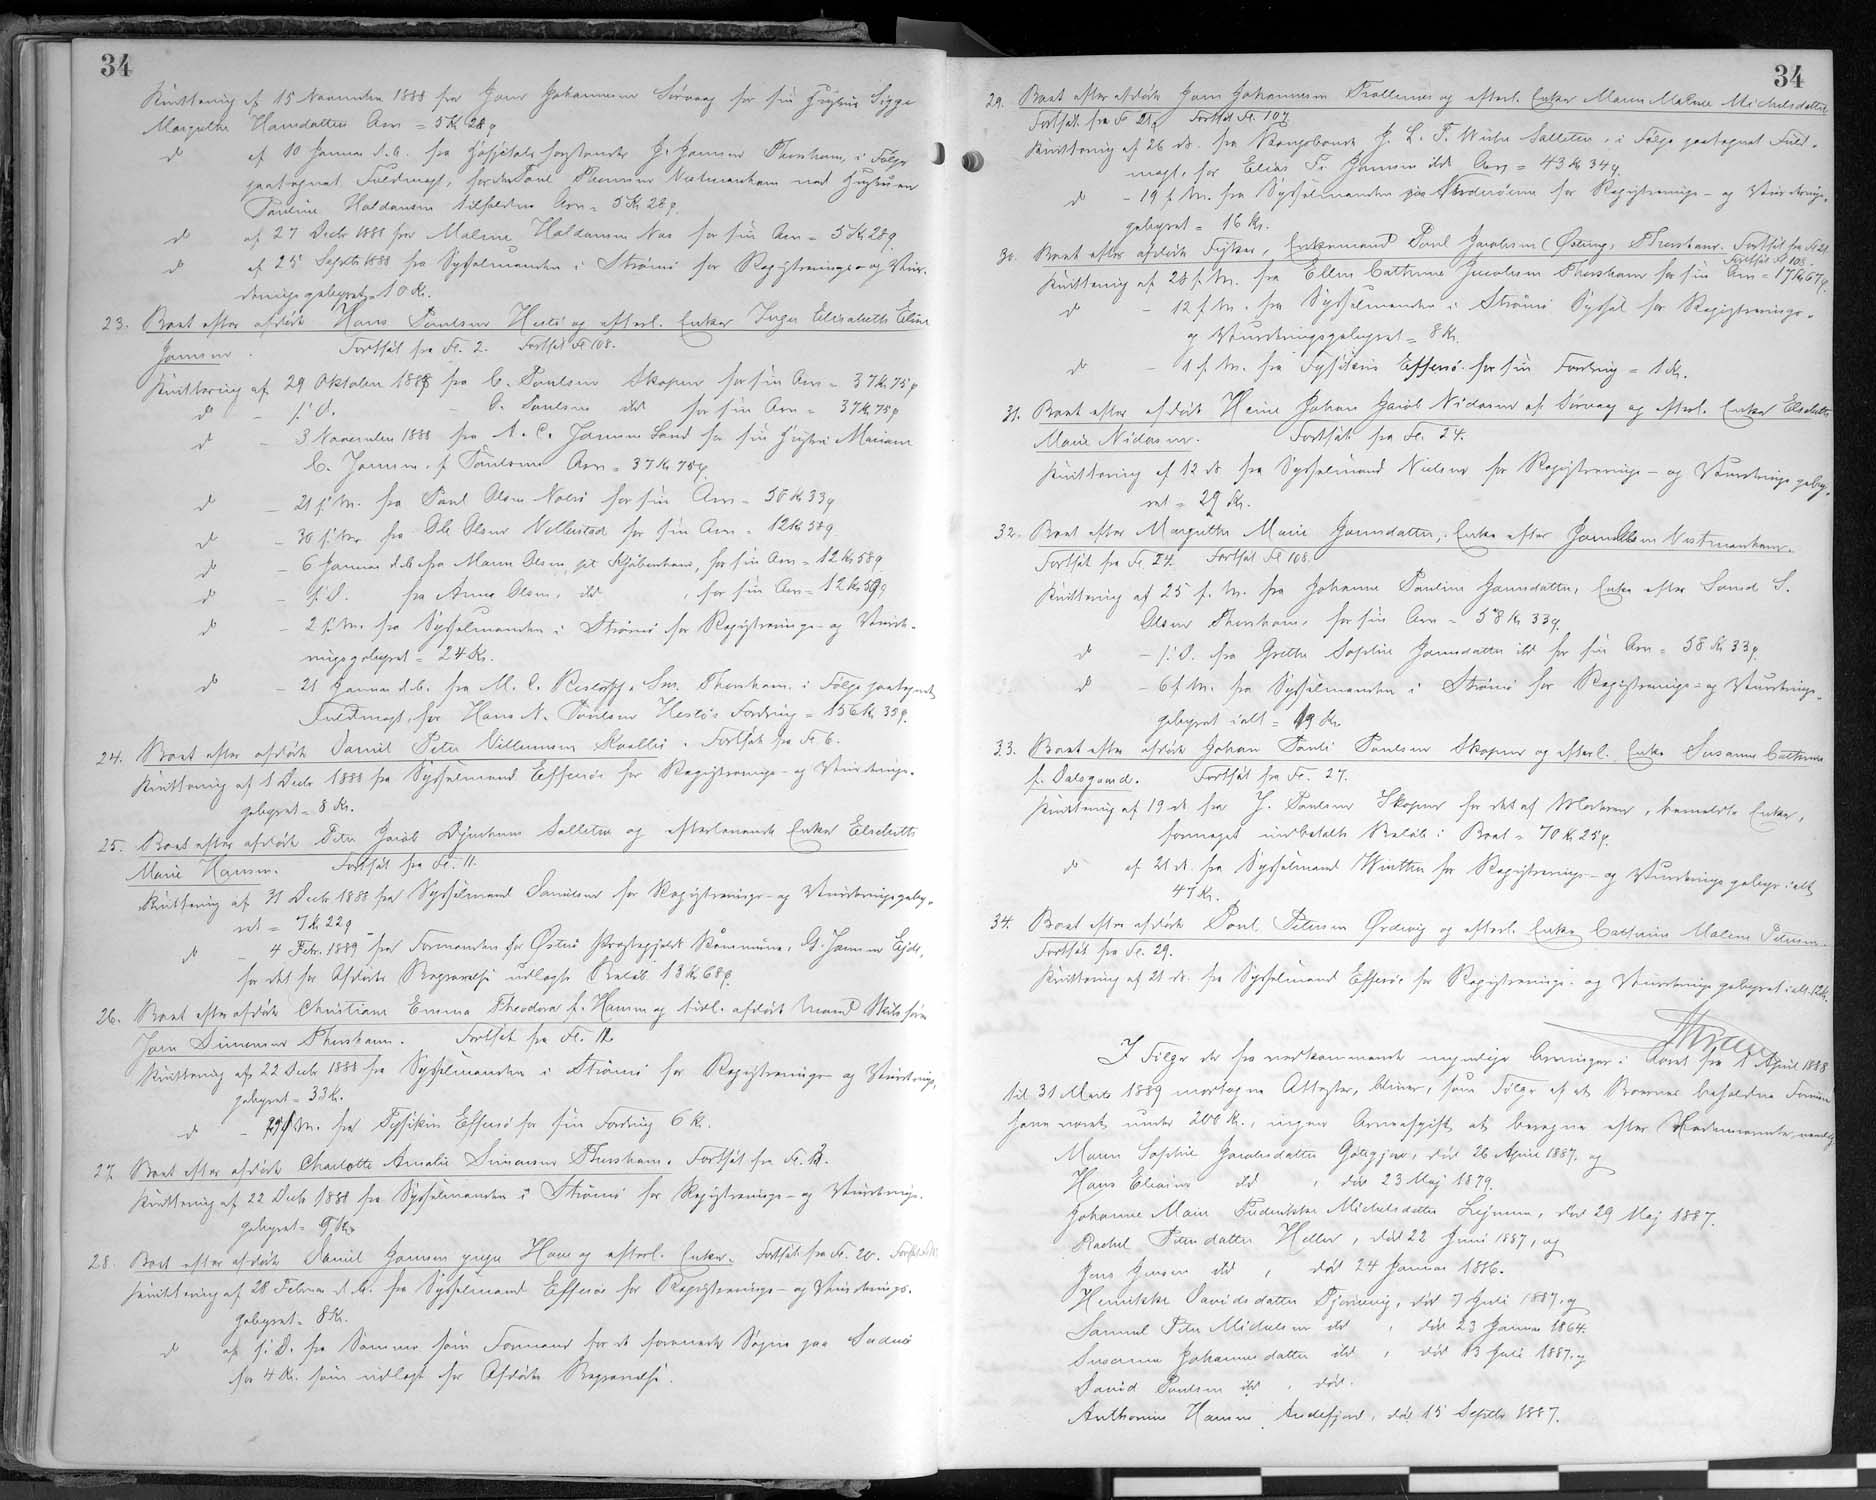 34
Kvittering af 15 November 1888 fra Joen Johannesen Sørvaag for sin Hustru Sigga
Margrethe Hansdatters Arv = 5 Kr 28 ø
d af 10 Januar d.A. fra Hospitalsforstander J. Jensen Thorshavn, i Følge
paategnet Fuldmagt, for den Poul Thomsen Vestmanhavn med Hustruen
Pauline Haldansen tilfaldne Arv = 5 Kr. 28 ø.
d af 27 Decbr 1888 fra Malene Haldansen Næs for sin Arv = 5 Kr 28 ø
d af 25 Septbr 1888 fra Sysselmanden i Strømø for Registrerings- og Vur-
deringsgebyret = 10 Kr.
23. Boet efter afdøde Hans Poulsen Hestø og efterl. Enke Inger Elisabeth Eline
Jensen. Fortsat fra Fl. 2. Fortsat Fl 108.
Kvittering af 29 Oktober 1888 fra C. Poulsen Skopen for sin Arv = 37 Kr. 75 ø
d - s. D. - O. Poulsen ibd for sin Arv = 37 Kr 75 ø
d - 3 November 1888 fra A. C. Jensen Sand for sin Hustru Mariane
C. Jensen f. Poulsens Arv = 37 Kr 75 ø.
d - 21 s. M. fra Poul Olsen Nolsø for sin Arv = 58 Kr 33 ø
d - 30 s. M. fra Ole Olsen Velbestad for sin Arv = 12 Kr 58 ø
d - 6 Januar d.A. fra Maren Olsen, pt Kjøbenhavn, for sin Arv = 12 Kr 58 ø
d - s. D. fra Anna Olsen, ibd , for sin Arv = 12 Kr 59 ø
d - 2 s. M. fra Sysselmanden i Strømø for Registrerings- og Vurde-
ringsgebyret = 24 Kr.
d - 21 Januar d.A. fra M. C. Restorff & Søn. Thorshavn. i Følge paategnet
Fuldmagt, for Hans N. Poulsen Hestøs Fordring = 156 Kr. 35 ø.
24. Boet efter afdøde Daniel Peter Villumsen Kvalbø. Fortsat fra Fl. 6.
Kvittering af 1 Decbr 1888 fra Sysselmand Effersøe for Registrerings- og Vurderings-
gebyret = 8 Kr.
25. Boet efter afdøde Peter Jacob Djurhuus Selletræ og efterlevende Enke Elsebeth
Marie Hansen. Fortsat fra Fl. 11.
Kvittering af 31 Decbr 1888 fra Sysselmand Samuelsen for Registrerings- og Vurderingsgeby-
ret = 7 Kr 22 ø
d - 4 Febr. 1889 fra Formanden for Østerø Præstegjelds Kommune, G. Jensen Ejde,
for det for Afdødes Begravelse udlagte Beløb 13 Kr 68 ø.
26. Boet efter afdøde Christiane Emma Theodora f. Hansen og tidl. afdøde Mand Skibsfører
Joen Simonsen Thorshavn. Fortsat fra Fl. 12.
Kvittering af 22 Decbr 1888 fra Sysselmanden i Strømø for Registrerings- og Vurderings-
gebyret = 33 Kr.
d - 29 s. M. fra Fysikus Effersø for sin Fordring 6 Kr.
27. Boet efter afdøde Charlotte Amalie Simonsen Thorshavn. Fortsat fra Fl. 12.
Kvittering af 22 Decbr 1888 fra Sysselmanden i Strømø for Registrerings- og Vurderings-
gebyret = 9 Kr
28. Boet efter afdøde Daniel Jensen yngre Hove og efterl. Enke. Fortsat fra Fl. 20.
Kvittering af 28 Februar d.A. fra Sysselmand Effersøe for Registrerings- og Vurderings-
gebyret = 8 Kr.
d af s. D. fra Samme som Formand for de forenede Sogne paa Suderø
for 4 Kr. som udlagt for Afdødes Begravelse.
34
29. Boet efter afdøde Joen Johannesen Trøllenæs og efterl. Enke Maren Malene Michelsdatter
Fortsat fra Fl. 21. Fortsat Fl. 107.
Kvittering af 26 ds. fra Kongsbonde J. L. P. Weihe Selletræ, i Følge paategnet Fuld-
magt, for Elias P. Jensen ibds Arv = 43 Kr 34 ø.
d - 19 f. M. fra Sysselmanden paa Norderøerne for Registrerings- og Vurderings-
gebyret = 16 Kr.
30. Boet efter afdøde Fisker, Enkemand Poul Jacobsen (Østing) Thorshavn. Fortsat fra Fl 21.
Fortsat Fl 108.
Kvittering af 28 f. M. fra Ellen Cathrine Jacobsen Thorshavn for sin Arv = 17 Kr 67 ø.
d - 12 f. M. fra Sysselmanden i Strømø Syssel for Registrerings-
og Vurderingsgebyret = 8 Kr.
d - 1 f. M. fra Fysikus Effersø for sin Fordring = 1 Kr.
31. Boet efter afdøde Heine Johan Jacob Nidasen af Sørvaag og efterl. Enke Elsebeth
Marie Nidasen. Fortsat fra Fl. 24.
Kvittering af 12 ds fra Sysselmand Nielsen for Registrerings- og Vurderingsgeby-
ret = 29 Kr.
32. Boet efter Margrethe Marie Joensdatter, Enke efter Joen Olsen Vestmanhavn.
Fortsat fra Fl. 24. Fortsat Fl 108.
Kvittering af 25 f. M. fra Johanne Pauline Joensdatter, Enke efter Samsd S.
Olsen Thorshavn, for sin Arv = 58 Kr 33 ø.
d - s. D. fra Grethe Sophie Joensdatter ibd for sin Arv = 58 Kr 33 ø
d - 6 f. M. fra Sysselmanden i Strømø for Registrerings- og Vurderings-
gebyret ialt = 19 Kr.
33. Boet efter afdøde Johan Pauli Poulsen Skopen og efterl. Enke Susanne Cathrine
f. Dalsgaard. Fortsat fra Fl. 27.
Kvittering af 19 ds fra J. Poulsen Skopen for det af Moderen, bemeldte Enke,
formeget indbetalte Beløb i Boet = 70 Kr. 25 ø.
d af 21 ds. fra Sysselmand Winther for Registrerings- og Vurderingsgebyr ialt
47 Kr.
34. Boet efter afdøde Poul Petersen Ørdevig og efterl. Enke Cathrine Malene Petersen.
Fortsat fra Fl. 29.
Kvittering af 21 ds. fra Sysselmand Effersøe for Registrerings- og Vurderingsgebyret ialt 12 Kr.
I Følge de fra vedkommende meddelte i Aaret fra 1 April 1888
til 31 Marts 1889 modtagne Attester, bliver, som Følge af at Boernes beholdne Formue
have været under 200 Kr., ingen Arveafgift at beregne efter Nedennævnte, nemlig
Maren Sophie Jacobsdatter Gøtegjov, død 26 April 1887, og
Hans Eliasen ibd , død 23 Maj 1879.
Johanne Marie Frederikke Michelsdatter Lejnum, død 29 Maj 1887.
Rachel Petersdatter Heller, død 22 Juni 1887, og
Jens Jensen ibd , død 24 Januar 1886.
Henrikke Davidsdatter Tjørnevig, død 7 Juli 1887, og
Samuel Peter Michelsen ibd , død 23 Januar 1864.
Susanne Johannesdatter ibd , død 13 Juli 1887, og
David Poulsen ibd , død.
Anthonius Hansen Andefjord, død 15 Septbr 1887.